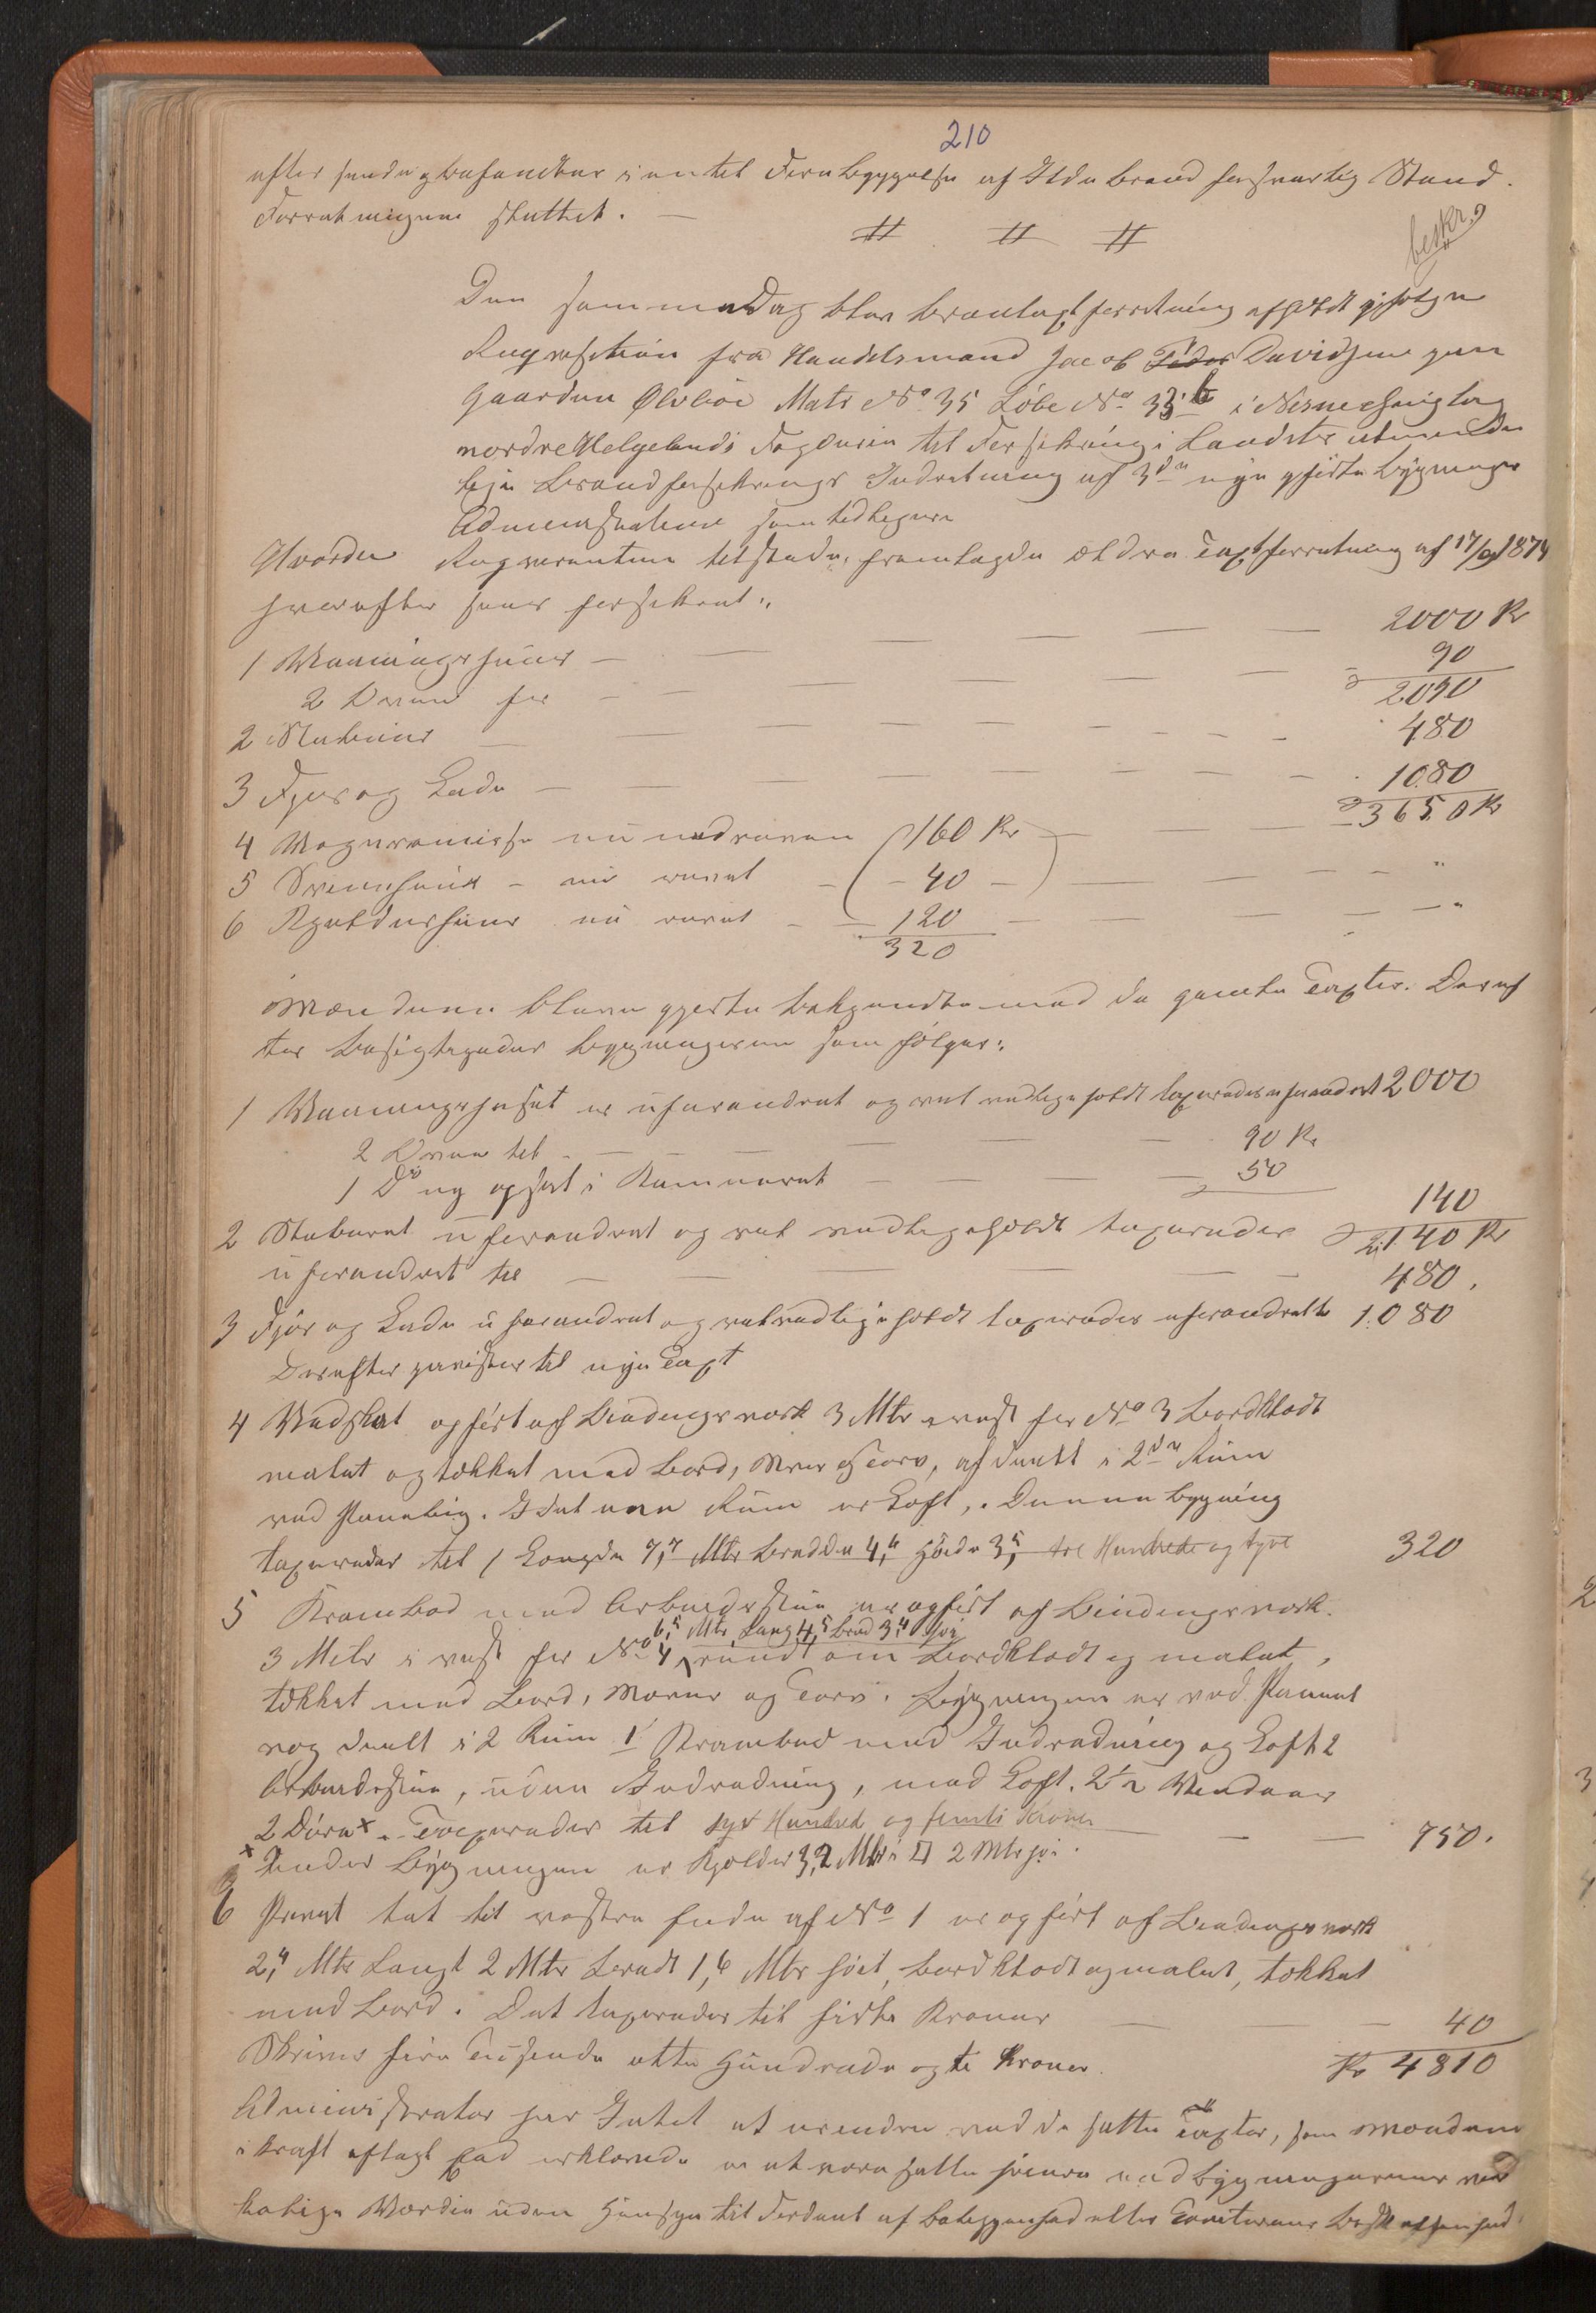 210
efter sunde og befandtes i en til Forebyggelse af Ildebrand forsvarlig Stand.
Forretningen sluttet. —
beskr.
Den sammeDag blev Brantaxtforretning afholdt ifølge
Requisition fra Handelsmand Jacob Davidsen paa
Gaarden Ølvlöi Matr No 35 Löbe No 33 b i Nesne Thinglag
nordre Helgelands Fogderi til Forsikring i Landets alminde
lige Brandforsikrings Indretning af 3de nye opførte Bygninger
Administrationen som tidligere
Hvorder Requirenten tilstede, fremlagde ældre Taxtforretning af 17/9 1874
hvorefter havs forsikret:
1 Vaaningshuus — 2000 Kr
2 Ovne for — 90
2090
2 Stabuur — 480
3 Fjøs og Lade — 1080
3650 Kr
4 Vognremisse nu nedreven 160 Kr
5 Svinehuus - nu revet - 40 -
6 Kjelderhuus nu revet - 120
320
Mændene bleve gjorte bekjendte med de gamle Taxter. Deref
ter besigtigedes Bygningerne som følger:
1 Vaaningshuset er uforandret og vel vedligeholdt taxeredes uforandret 2000
2 Ovne til — 90 Kr
1 Do ny opsat i Kammeret — 50
140
2 Staburet uforandret og vel vedligeholdt taxeredes 2140 Kr
uforandret til — 480.
3 Fjøs og Lade uforandret og vel vedligeholdt taxeredes uforandret 1080
Derefter paavistes til nye Taxt
4 Vedskot opført af Bindingsverk 3 Mtr vest for No 3 Bordklædt
malet og tækket med Bord, Næver og Torv, afdeelt i 2de Rum
ved Panelvæg. I det ene Rum er Loft,. Denne Bygning
taxeredes til / Længde 7,7 Mtr Bredde 4,4 Høide 3,5 tre Hundrede og tyve 320
5 Krambod med Arbeidsstue er opført af Bindingsverk.
6,5 Mtr Lang 4,5 bred 3,4 høi
3 Metr i vest for No 4 rundt om Bordklædt og malet,
tækket med Bord, Næver og Torv. Bygningen er ved Panel
væg deelt i 2 Rum 1 Krambod med Indredning og Loft 2
Arbeidsstue, uden Indredning, med Loft. 2 1/2 Vinduer
2 Døre x. Taxeredes til syv Hundred og femti Kroner — 750.
x Under Bygningen er Kjelder 3,2 Mtr i □ 2 Mtr høi.
6 Privet tæt til vestre Ende af No 1 er opført af Bindingsverk
2,4 Mtr Langt 2 Mtr bredt 1,6 Mtr høit, bordklædt og malet, tækket
med Bord. Det taxeredes til førti Kroner — 40
Skriver fire Tusende otte Hundrede og ti Kroner. Kr 4810
Administrator har Intet at erindre ved de satte Taxter, som Mændene
i Kraft aflagt Eed erklærede er at være satte hensyn ved Bygningernes vær
kelige Værdie uden Hensyn til Fordeel af Beliggenhed eller Tomternes Beskaffenhed